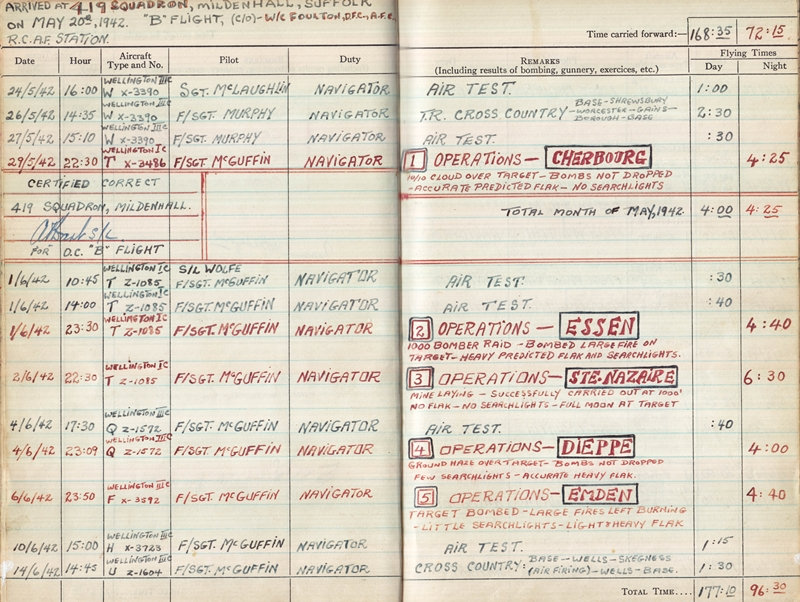 ARRIVED AT 419 SQUADRON, MILDENHALL, SUFFOLK
ON MAY 20TH, 1942. "B" FLIGHT, (C/O)-W/C FOULTON, D.F.C., A.F.C.,
R.C.A.F. STATION.
Time carried forward:— 168:35 72:15
Date Hour Aircraft Type and No. Pilot Duty REMARKS (Including results of bombing, gunnery, exercices, etc.) Flying Times Day Night
24/5/42 16:00 WELLINGTON IIIC W X-3390 SGT. MCLAUGHLIN NAVIGATOR AIR TEST. 1:00
26/5/42 14:35 WELLINGTON IIIC W X-3390 F/SGT. MURPHY NAVIGATOR T.R. CROSS COUNTRY- BASE-SHREWSBURY -WORCESTER-GAINS- BOROUGH-BASE 2:30
27/5/42 15:10 WELLINGTON IIIC W X-3390 F/SGT. MURPHY NAVIGATOR AIR TEST. :30
29/5/42 22:30 WELLINGTON IC T X-3486 F/SGT. MCGUFFIN NAVIGATOR 1 OPERATIONS- CHERBOURG 4:25
10/10 CLOUD OVER TARGET-BOMBS NOT DROPPED
-ACCURATE PREDICTED FLAK-NO SEARCHLIGHTS
CERTIFIED CORRECT
419 SQUADRON, MILDENHALL.
TOTAL MONTH OF MAY, 1942. 4:00 4:25
S/L
FOR O.C. "B" FLIGHT
1/6/42 10:45 WELLINGTON IC T Z-1085 S/L WOLFE F/SGT. MCGUFFIN NAVIGATOR AIR TEST. :30
1/6/42 14:00 WELLINGTON IC T Z-1085 F/SGT. MCGUFFIN NAVIGATOR AIR TEST. :40
1/6/42 23:30 WELLINGTON IC T Z-1085 F/SGT. MCGUFFIN NAVIGATOR 2 OPERATIONS- ESSEN 4:40
1000 BOMBER RAID-BOMBED LARGE FIRE ON
TARGET-HEAVY PREDICTED FLAK AND SEARCHLIGHTS.
2/6/42 22:30 WELLINGTON IC T Z-1085 F/SGT. MCGUFFIN NAVIGATOR 3 OPERATIONS- STE-NAZAIRE 6:30
MINE LAYING - SUCCESSFULLY CARRIED OUT AT 1000'
NO FLAK-NO SEARCHLIGHTS-FULL MOON AT TARGET
4/6/42 17:30 WELLINGTON IIIC Q Z-1572 F/SGT. MCGUFFIN NAVIGATOR AIR TEST. :40
4/6/42 23:09 WELLINGTON IIIC Q Z-1572 F/SGT. MCGUFFIN NAVIGATOR 4 OPERATIONS- DIEPPE 4:00
GROUND HAZE OVER TARGET-BOMBS NOT DROPPED
FEW SEARCHLIGHTS-ACCURATE HEAVY FLAK.
6/6/42 23:50 WELLINGTON IIIC F X-3592 F/SGT. MCGUFFIN NAVIGATOR 5 OPERATIONS- EMDEN 4:40
TARGET BOMBED-LARGE FIRES LEFT BURNING
-LITTLE SEARCHLIGHTS-LIGHT & HEAVY FLAK
10/6/42 15:00 WELLINGTON IIIC H X-3723 F/SGT. MCGUFFIN NAVIGATOR AIR TEST. 1:15
14/6/42 14:45 WELLINGTON IIIC U Z-1604 F/SGT. MCGUFFIN NAVIGATOR CROSS COUNTRY: BASE-WELLS-SKEGNESS (AIR FIRING)-WELLS-BASE. 1:30
TOTAL TIME.... 177:10 96:30